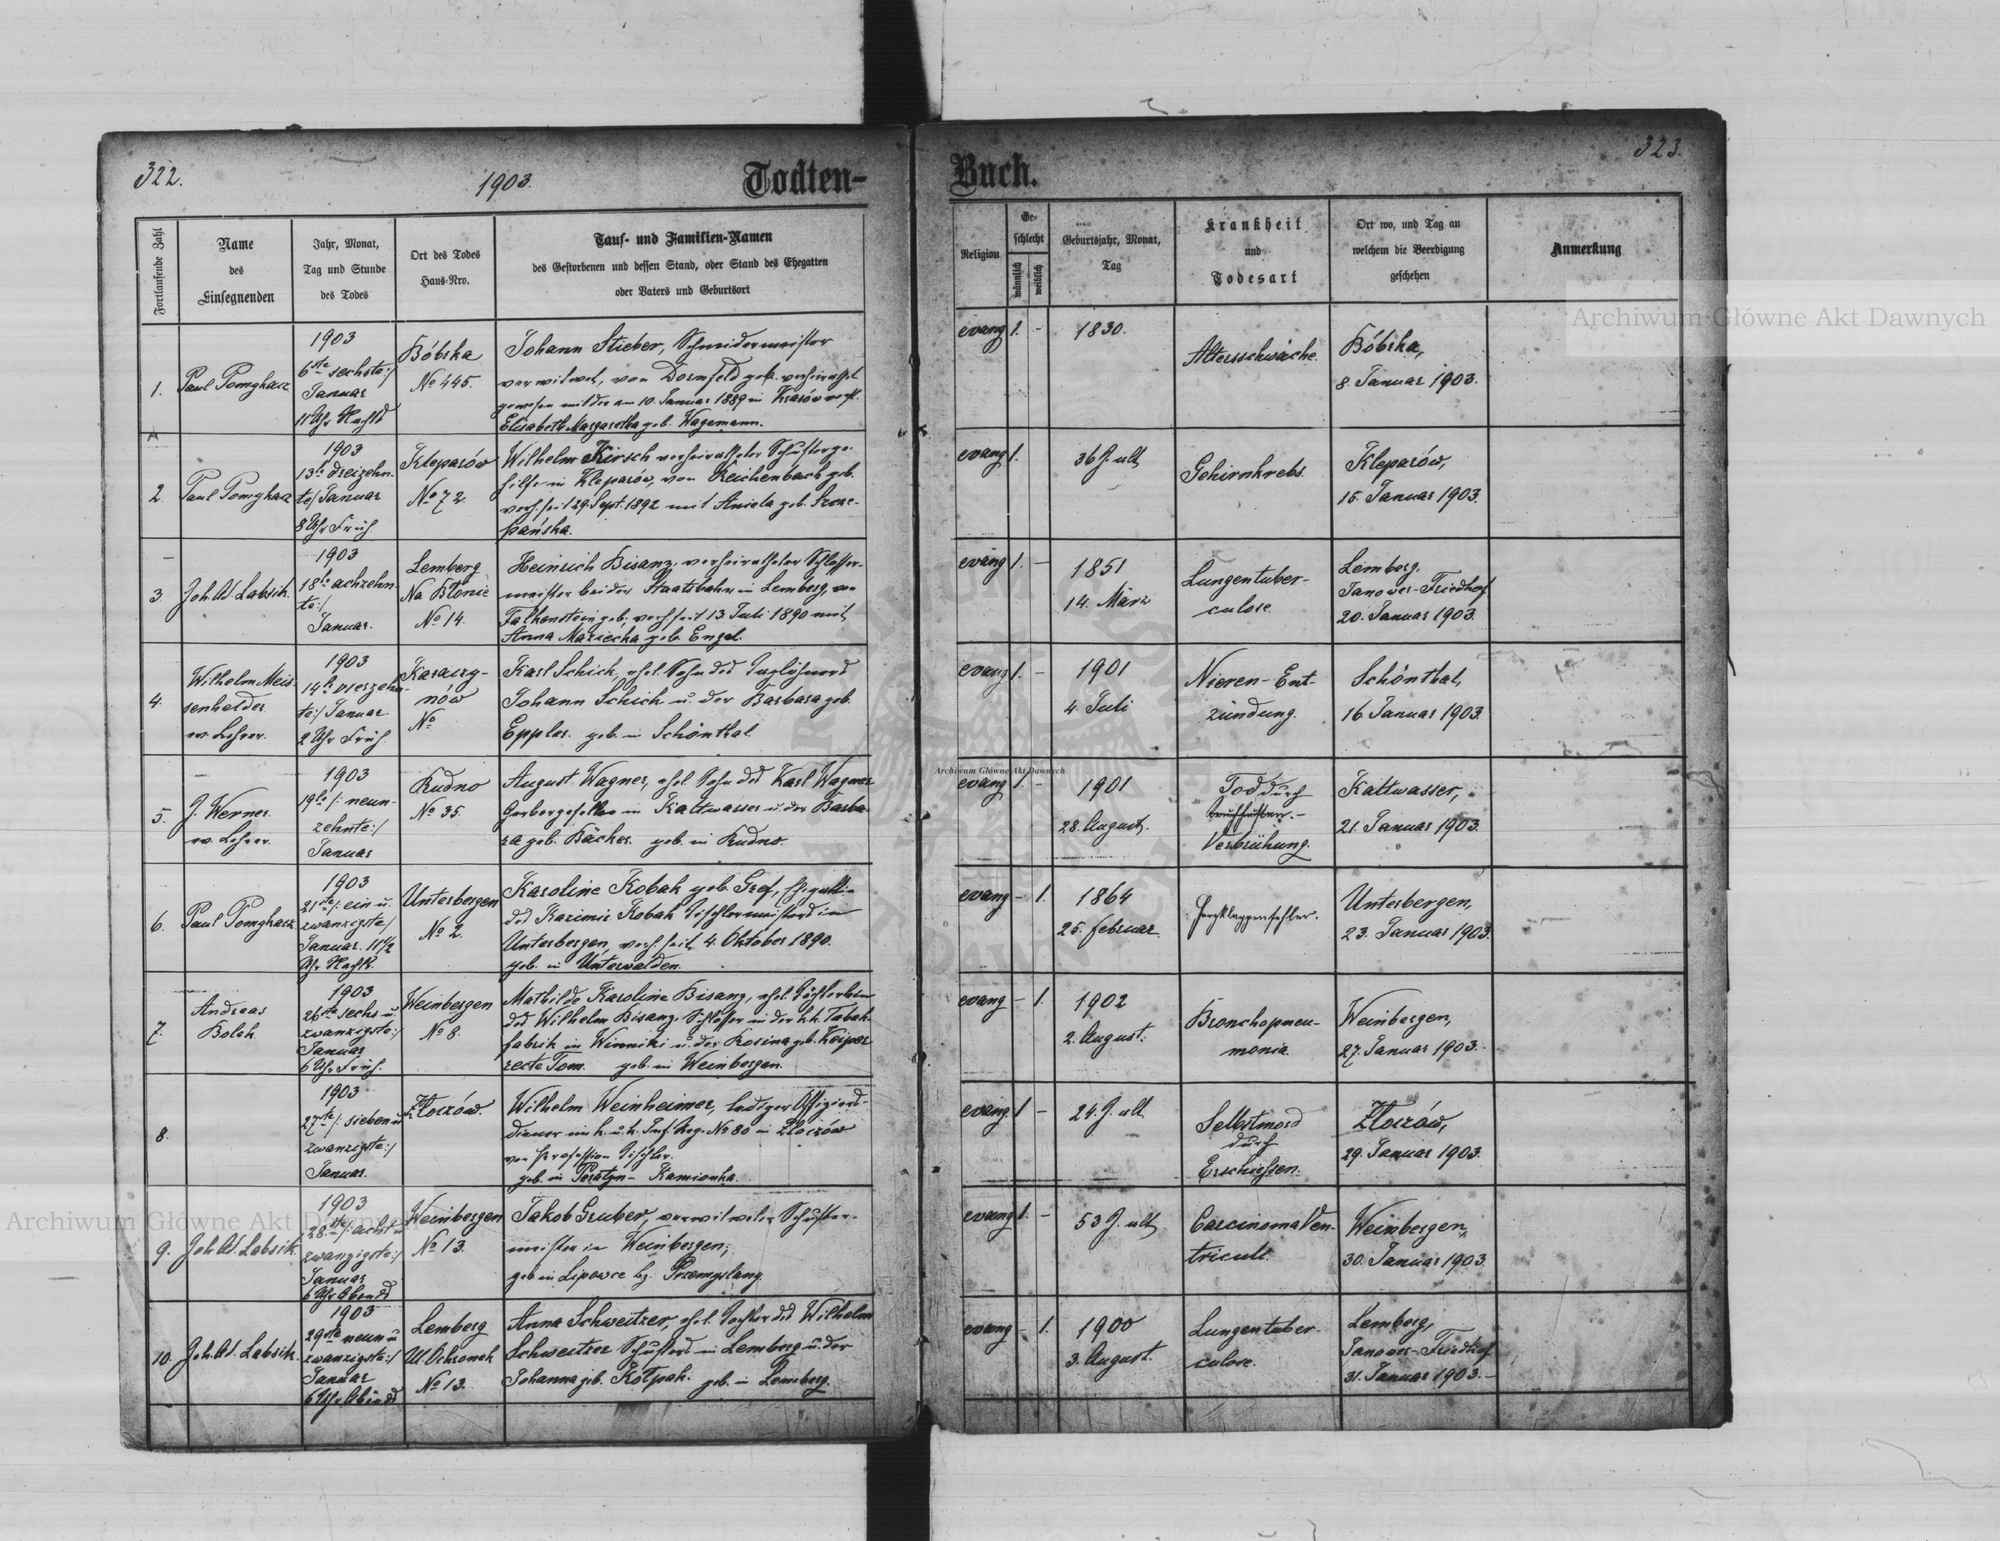 322.
1903.
Todten-
Fortlaufende Zahl
Name
des
Einsegnenden
Jahr, Monat,
Tag und Stunde
des Todes
Ort des Todes
Haus-Nro.
Tauf- und Familien-Namen
des Gestorbenen und dessen Stand, oder Stand des Ehegatten
oder Vaters und Geburtsort
1.
Paul Pomykacz
1903
6te sechste:/
Januar
11 Uhr Nachts
Bóbrka
No 445.
Johann Stieber, Schneidermeister
verwitwet, von Dornfeld geb. verheirathet
gewesen mit der am 10. Januar 1889 in
Elisabeth Margaretha geb. Wagemann.
2.
Paul Pomykacz
1903
13te dreizehn-
te/ Januar
8 Uhr Früh.
Kleparów
No 72.
Wilhelm Kirsch verheiratheter Schusterge-
hilfe in Kleparów, von Reichenbach geb.
verh. seit 29. Sept. 1892 mit Aniela geb. Szcze-
pańska.
3
Joh. Ad. Labsik.
1903
18te achzehn-
te:/
Januar.
Lemberg
Na Błonie
No 14.
Heinrich Bisanz, verheiratheter Schlosser-
meister bei der Staatsbahn in Lemberg, von
Falkenstein geb., verh. seit 13 Juli 1890 mit
Anna Mariecka geb. Engel.
4.
Wilhelm Meis-
senhelder
ev. Lehrer.
1903
14te vierzehn-
te:/ Januar
2 Uhr Früh.
Karaczy-
nów
No
Karl Schick, ehel. Sohn des Taglöhners
Johann Schick u. der Barbara geb.
Eppler. geb. in Schönthal.
5.
J. Werner
ev. Lehrer.
1903
19te /: neun-
zehnte:/
Januar
Rudno
No 35.
August Wagner, ehel. Sohn des Karl Wagner
Gerbergesellen in Kaltwasser u. der Barba-
ra geb. Bäcker. geb. in Rudno.
6.
Paul Pomykacz
1903
21te /: ein u.
zwanzigste/
Januar. 11 1/2
Uhr Nachts.
Unterbergen
No 2.
Karoline Kobak geb. Gref, Ehegattin
des Kazimir Kobak Tischlermeisters in
Unterbergen, verh. seit 4. Oktober 1890.
geb. in Unterwalden.
7.
Andreas
Bolek
1903
26te sechs u.
zwanzigste:/
Januar
6 Uhr Früh.
Weinbergen
No 8.
Mathilde Karoline Bisanz, ehel. Töchterlein
des Wilhelm Bisanz, Schlosser in der k.k. Tabak-
fabrik in Winniki u. der Rosina geb. Keiper
recte Tom. geb. in Weinbergen.
8.
1903
27te /: sieben u.
zwanzigste:/
Januar.
Złoczów.
Wilhelm Weinheimer, lediger Offiziers-
diener im k. u. k. Inf. Reg. No 80 in Złoczów
von Profession Tischler.
geb. in Peratyn - Kamionka.
9.
Joh. Ad. Labsik.
1903
28te /: acht u.
zwanzigste:/
Januar
6 Uhr Abends
Weinbergen
No 13.
Jakob Gruber, verwitweter Schuster-
meister in Weinbergen,
geb. in Lipowce bz. Przemyslany.
10.
Joh. Ad. Labsik.
1903
29te neun u.
zwanzigste:/
Januar
6 Uhr Abends
Lemberg
Ul. Ochronek
No 13.
Anna Schweitzer, ehel. Tochter des Wilhelm
Schweitzer Schusters in Lemberg u. der
Johanna geb. Kołpak. geb. in Lemberg.
Buch.
323.
Religion
Ge-
schlecht
männlich
weiblich
Geburtsjahr, Monat,
Tag
Krankheit
und
Todesart
Ort wo, und Tag an
welchem die Beerdigung
geschehen
Anmerkung
evang 1. -
1830.
Altersschwäche.
Bóbrka,
8. Januar 1903.
evang 1.
36 J. alt
Gehirnkrebs.
Kleparów,
15. Januar 1903.
evang 1. -
1851
14. März
Lungentuber-
culose.
Lemberg,
Janower-Friedhof
20. Januar 1903.
evang 1. -
1901
4. Juli
Nieren-Ent-
zündung.
Schönthal,
16. Januar 1903.
evang 1. -
1901
28. August.
Tod durch
Verbrühung.
Kaltwasser,
21. Januar 1903.
evang - 1.
1864
25. Februar.
Herzklappenfehler.
Unterbergen,
23. Januar 1903.
evang - 1.
1902
2. August.
Bronchopneu-
monia.
Weinbergen,
27. Januar 1903.
evang 1 -
24 J. alt
Selbstmord
durch
Erschießen.
Złoczów,
29. Januar 1903.
evang 1. -
53 J. alt
Carcinoma Ven-
triculi.
Weinbergen,
30. Januar 1903.
evang - 1.
1900
3. August.
Lungentuber-
culose.
Lemberg,
Janower-Friedhof
31. Januar 1903. -
Archiwum Główne Akt Dawnych
Archiwum Główne Akt Dawnych
Archiwum Główne Akt Dawnych